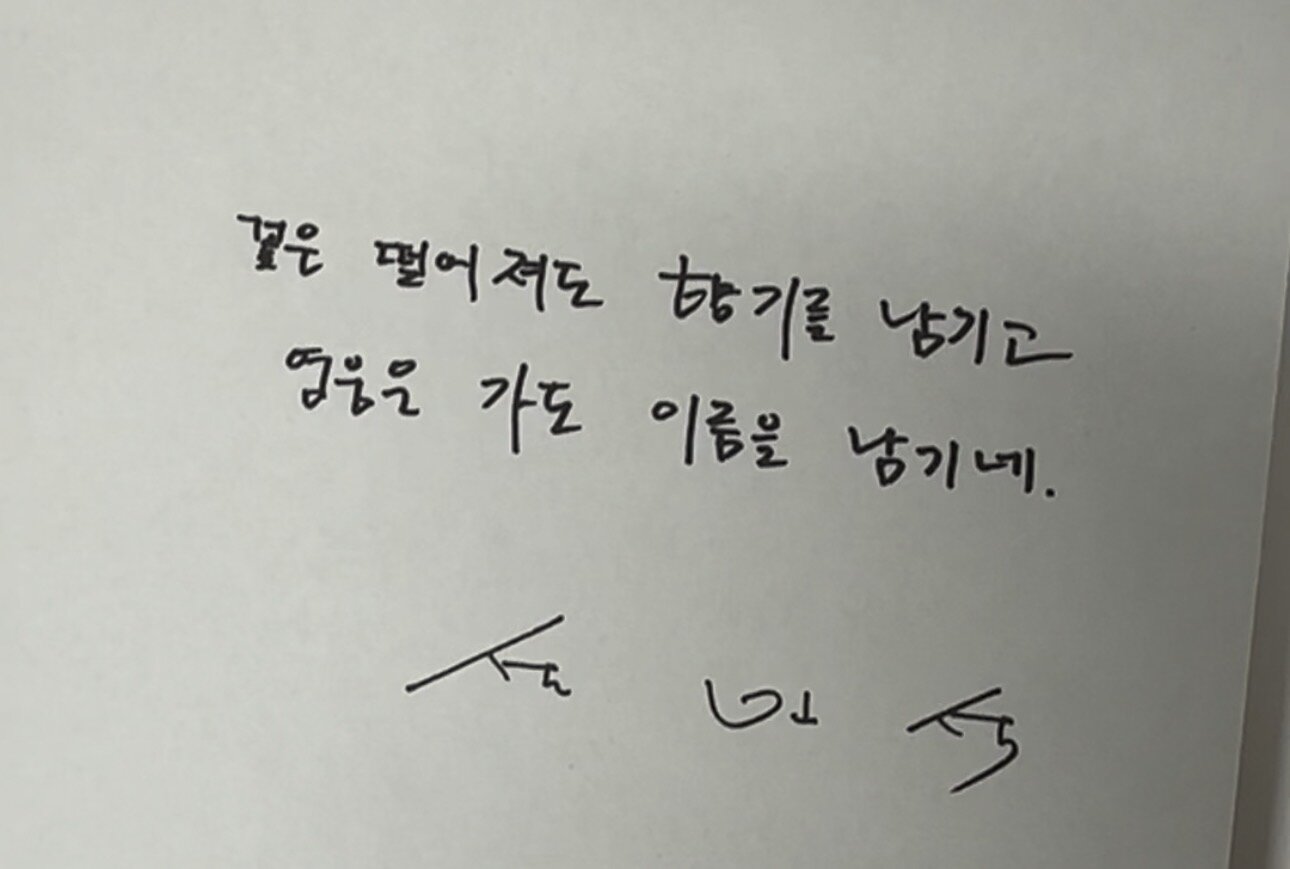 꽃은 떨어져도 향기를 남기고
영웅은 가도 이름을 남기네.